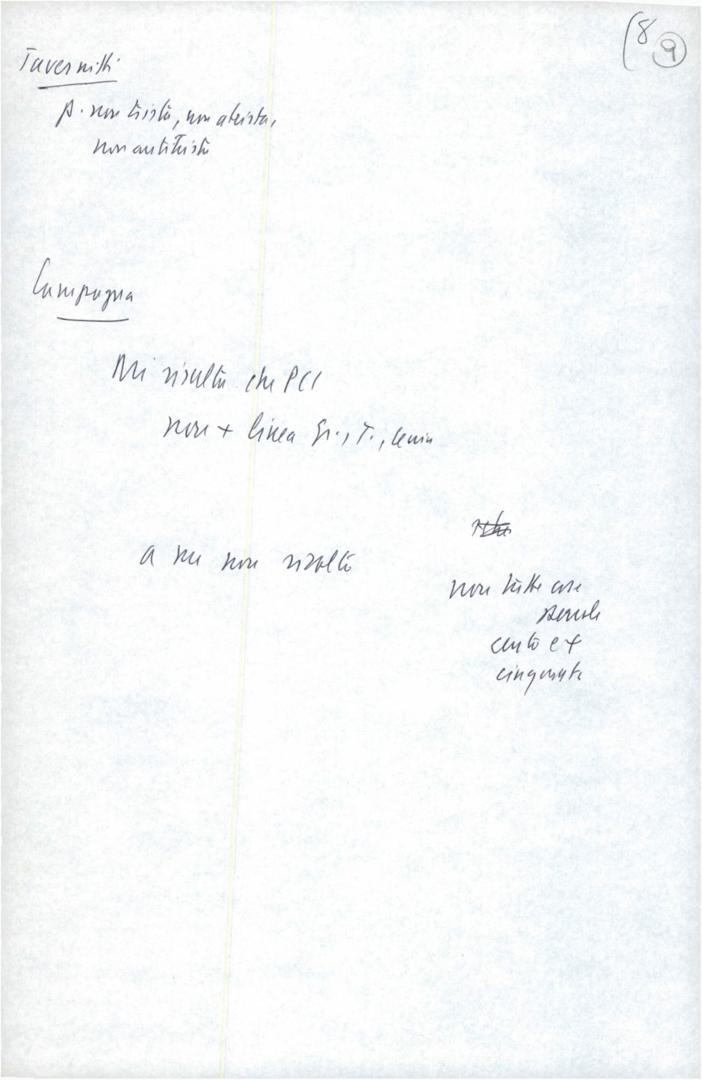 (8
9
Tavernitti
p. non teista, non ateista,
non antiteista
Campagna
Mi risulta che PCI
non + linea Gr., T., Lenin
a me non risulta
non tutte cose
cento e +
cinquanta